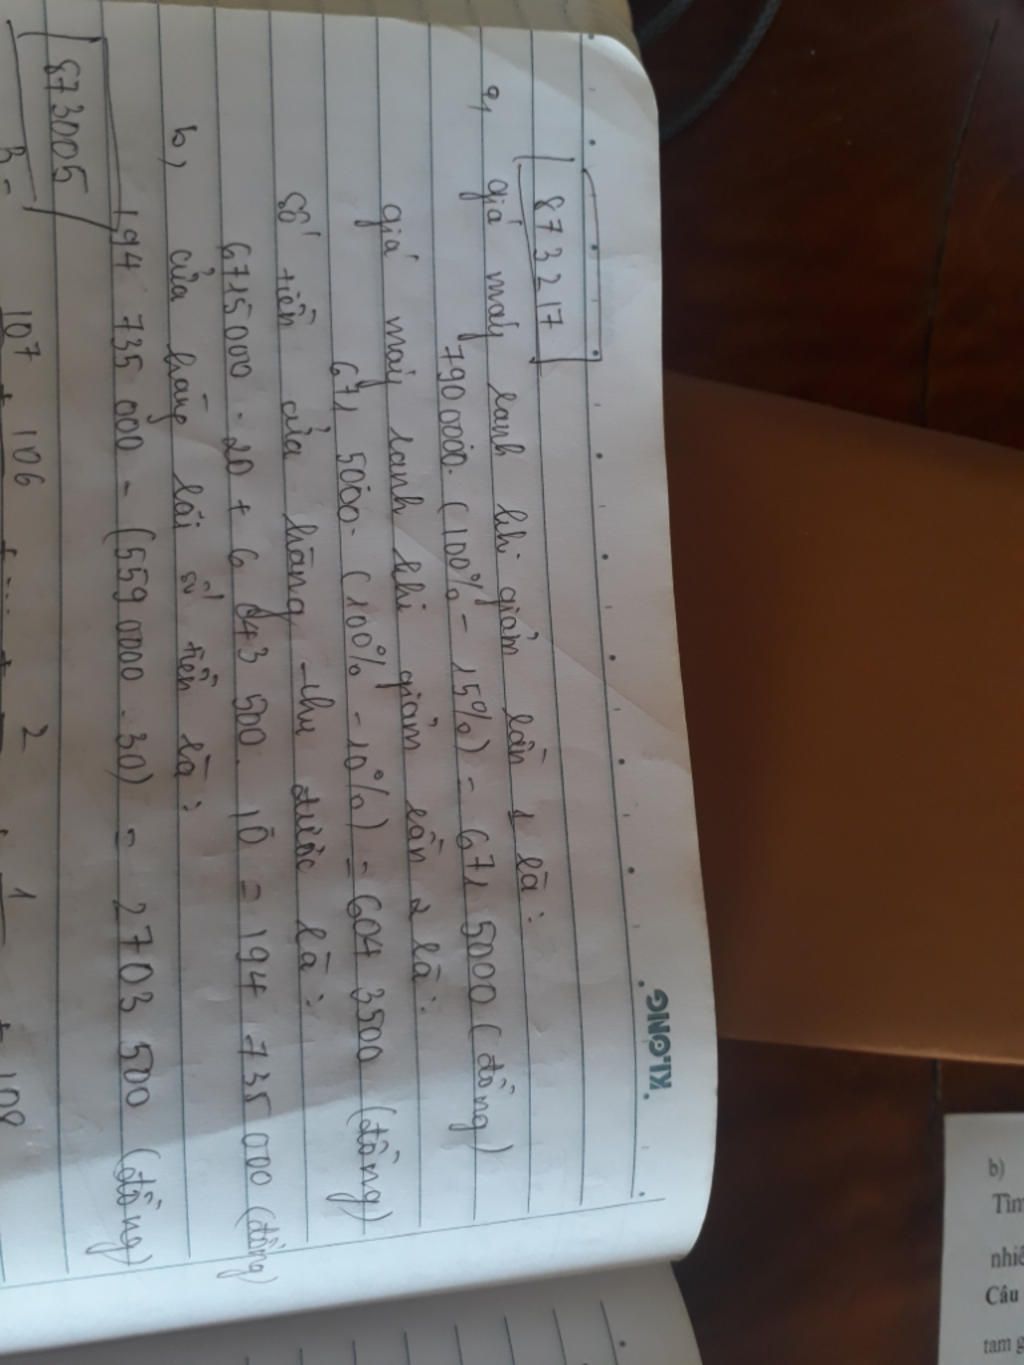 KLONG
873217
a, giá máy lạnh khi giảm lần 1 là:
7900000. (100% - 15%) = 671 5000 (đồng)
giá máy lạnh khi giảm lần 2 là:
671 5000. (100% - 10%) = 604 3500 (đồng)
số tiền cửa hàng thu được là:
6715000 . 20 + 6 043 500. 10 = 194 735 000 (đồng)
b, cửa hàng lãi số tiền là:
194 735 000 - (559 0000 . 30) = 2703 500 (đồng)
873005
107 106 2 1 108
b)
Tìm
nhiê
Câu
tam g